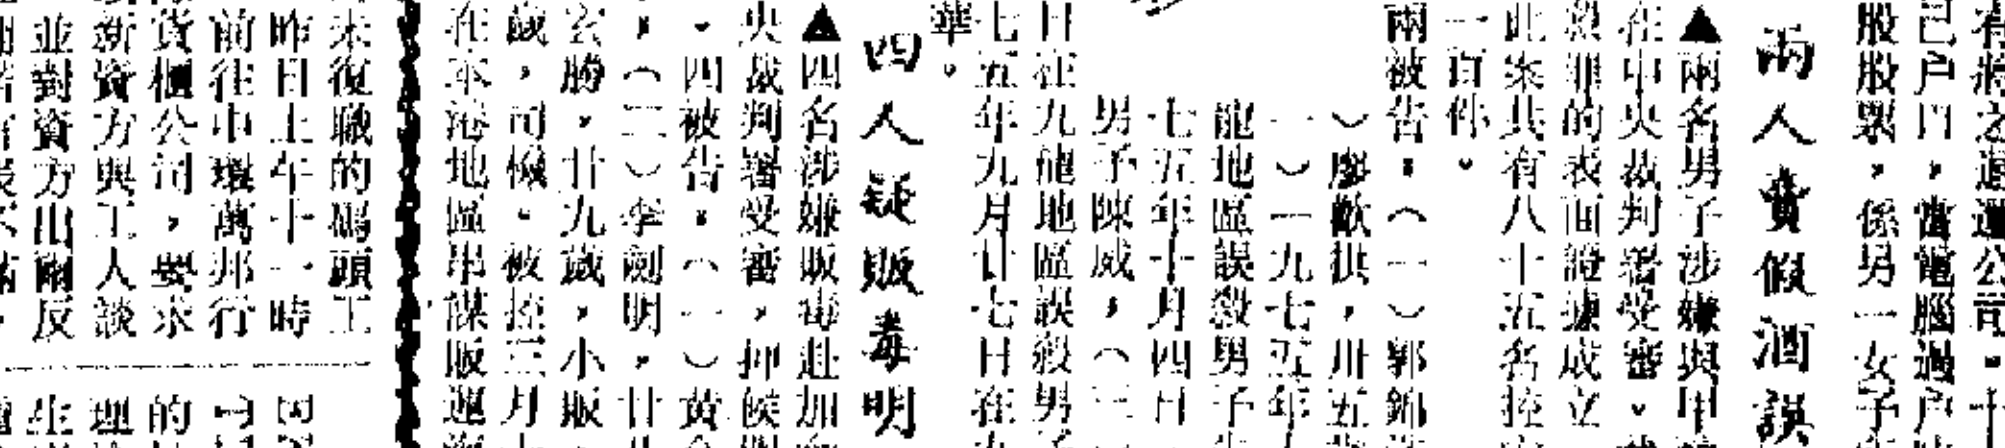 有將之過運公司。十
己户口，當電腦過户
股股票，係男一女子
兩人賣假酒誤
▲兩名男子涉嫌與甲
在中央裁判署受審。
殺罪的表面證據成立
此案共有八十五名控
一百件。
兩被告：（一）郭錦
）廖歡拱，卅五
一）一九七五年
龍地區誤殺男子
七五年十月四日
男子陳威，（三
日在九龍地區誤殺男
七五年九月廿七日在九
華。
四人疑販毒明
▲四名涉嫌販毒赴加
央裁判署受審，押候
。四被告：（一）黃
，（三）李劍明，廿
玄勝，廿九歲，小販
歲，司機。被控三月
在本港地區串謀販運
未復職的碼頭工
昨日上午十一時
前往中環萬邦行
貨櫃公司，要求
新資方與工人談
並對資方出爾反
的
理
生